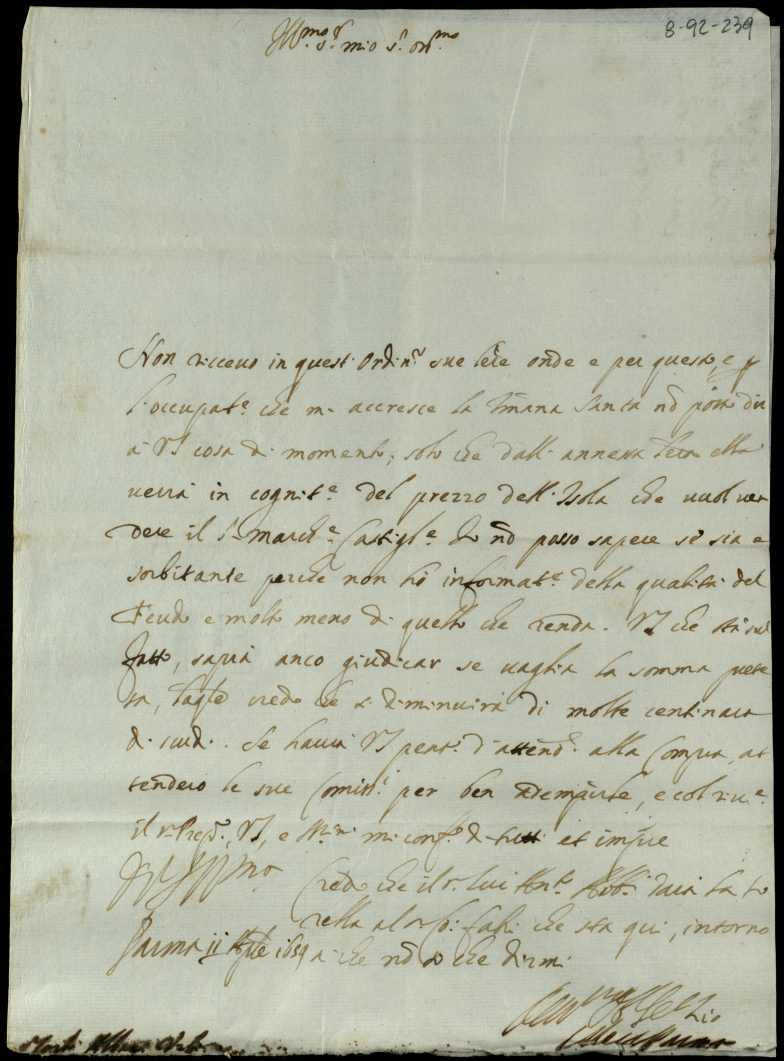 8-92-239
Ill.mo S.r mio S.r oss.mo
Non riceuo in quest'Ordin.o sue lr̃e onde e per questo e p
l'occupat.e che mi accresce la Sm̃ana Santa nõ posso dir
à VS cosa di momento, solo che dall'annessa lr̃a ella
uerrà in cognit.e del prezzo dell'Isola che uuol uen
dere il S.r March.e Castigl.e che nõ posso sapere se sia e
sorbitante perche non hò informat.e della qualità del
Feudo e molto meno di quello che renda. VS che stà sul
fatto, saprà anco giudicar se uaglia la somma prete
sa, credo che si diminuirà di molte centinara
di scudi. Se haurà VS pens.o d'attend.e alla Compra, at
tenderò le sue Comiss.i per ben adempirle, e col riu.e
il S.r VS, e mi conf.o di tutti et
Di VS Ill.ma
Credo che il S.r darà la
rella al che sta qui, intorno
Parma 11 Aprile 1659 a che nõ sò che dirmi